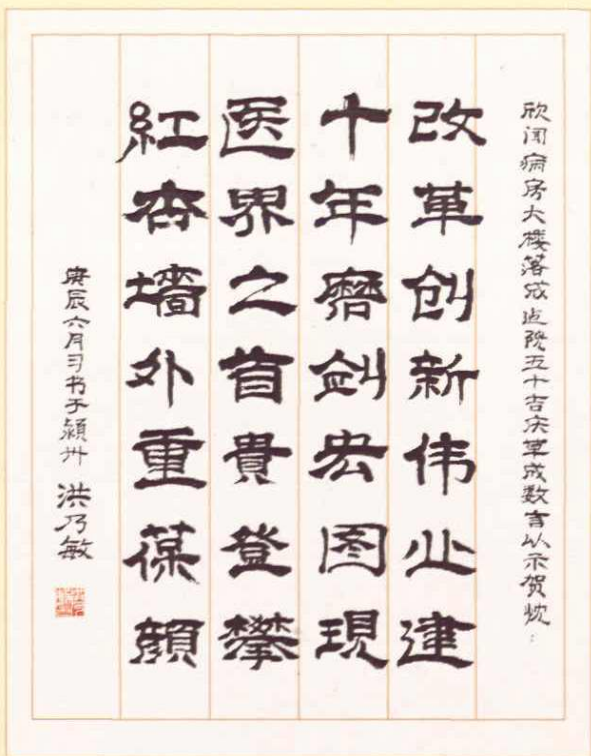 欣闻病房大楼落成迎院五十吉庆草成数言以示贺忱：
改革创新伟业建
十年磨剑宏图现
医界之首貴登攀
紅杏墻外重葆顔
庚辰六月习书于颍州 洪乃敏